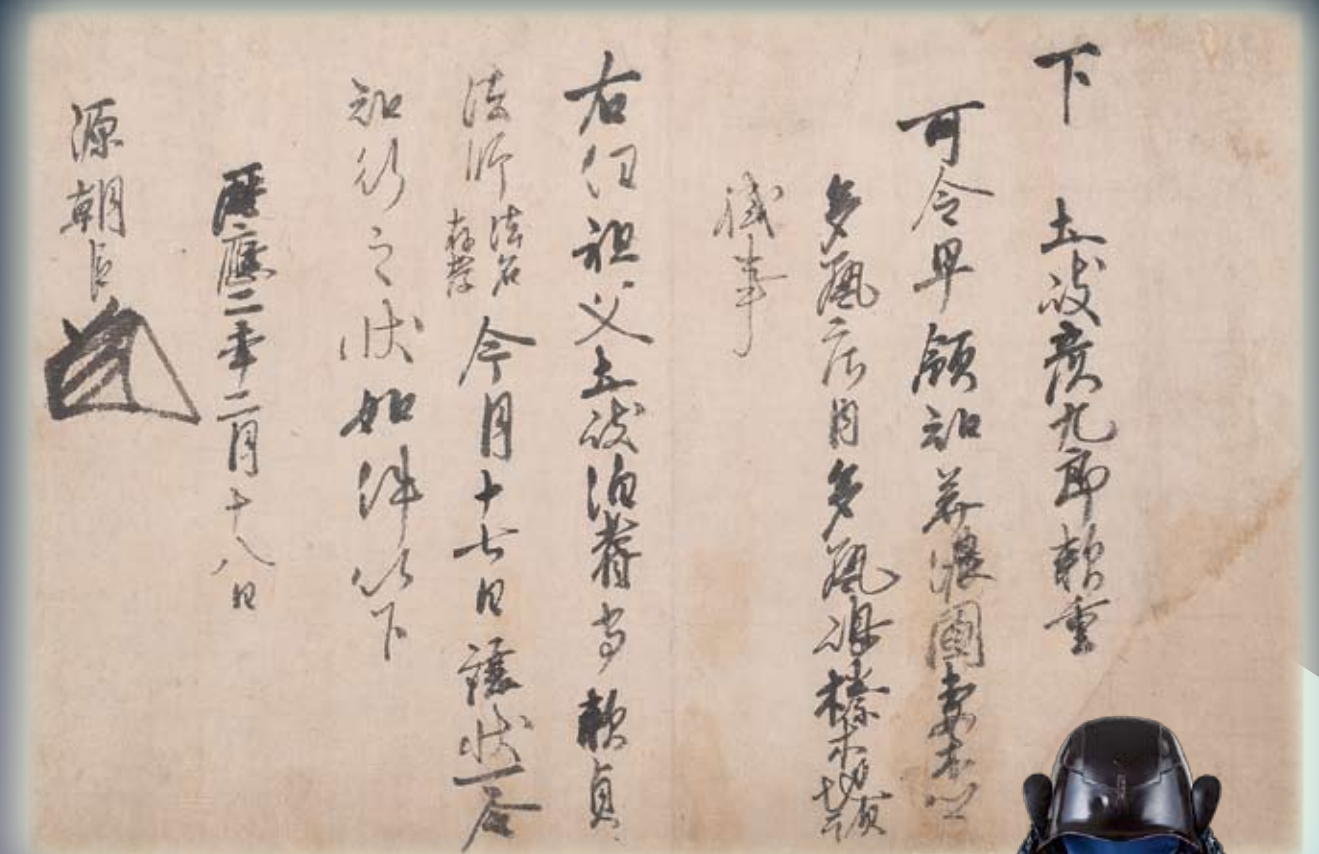 下 土岐彦九郎頼重
可令早領知美濃國妻木郷
多藝庄内多藝嶋榛木地頭
職事
右任祖父土岐伯耆守頼貞
法師法名存孝今月十七日譲状可令
知行之状如件以下
暦應二年二月十八日
源朝臣